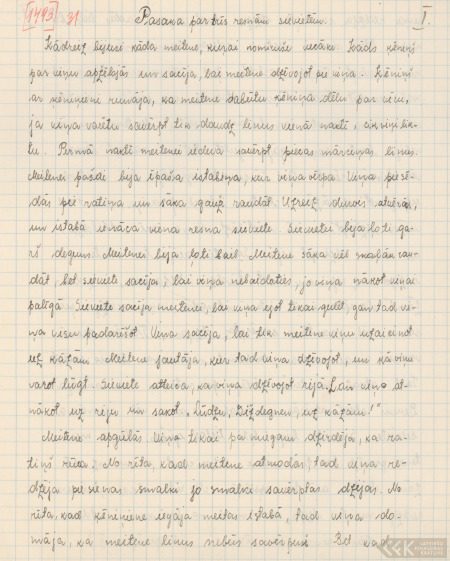 [1493] 31 Pasaka par trīs resnām sievietēm. 1.
Kādreiz bijusi kāda meitene, kurai nomiruši vecāki. Kāds ķēniņš
par viņu apžēlojās un sacīja, lai meitene dzīvojot pie viņa. Ķēniņš
ar ķēniņieni runāja, ka meitene dabūtu ķēniņa dēlu par vīru,
ja viņa varētu savērpt tik daudz linus vienā naktī, cik viņi lik-
tu. Pirmā naktī meitenei iedeva savērpt piecas mārciņas linus.
Meitenei pašai bija īpaša istabiņa, kur viņa vērpa. Viņa piesē-
dās pie ratiņa un sāka gauži raudāt. Uzreiz durvis atvērās,
un istabā ienāca viena resna sieviete. Sievietei bija ļoti ga-
rš deguns. Meitenei bija ļoti bail. Meitene sāka vēl skaļāk rau-
dāt, bet sieviete sacīja, lai viņa nebaidoties, jo viņa nākot viņai
palīgā. Sieviete sacīja meitenei, lai viņa ejot tikai gulēt, gan tad vi-
ņa visu padarīšot. Viņa sacīja, lai tik meitene viņu uzaicinot
uz kāzām. Meitene jautāja, kur tad viņa dzīvojot, un kā viņu
varot lūgt. Sieviete atteica, ka viņa dzīvojot rijā. Lai viņa at-
nākot uz riju un sakot: „Lūdzu, Diždegnen, uz kāzām!"
Meitene apgūlās. Viņa tikai pa miegam dzirdēja, ka ra-
tiņš rūca. No rīta, kad meitene atmodās, tad viņa re-
dzēja pie sienas smalki jo smalki savērptas dzijas. No
rīta, kad ķēniņiene iegāja meitas istabā, tad viņa do-
māja, ka meitene linus nebūs savērpusi. Bet kad